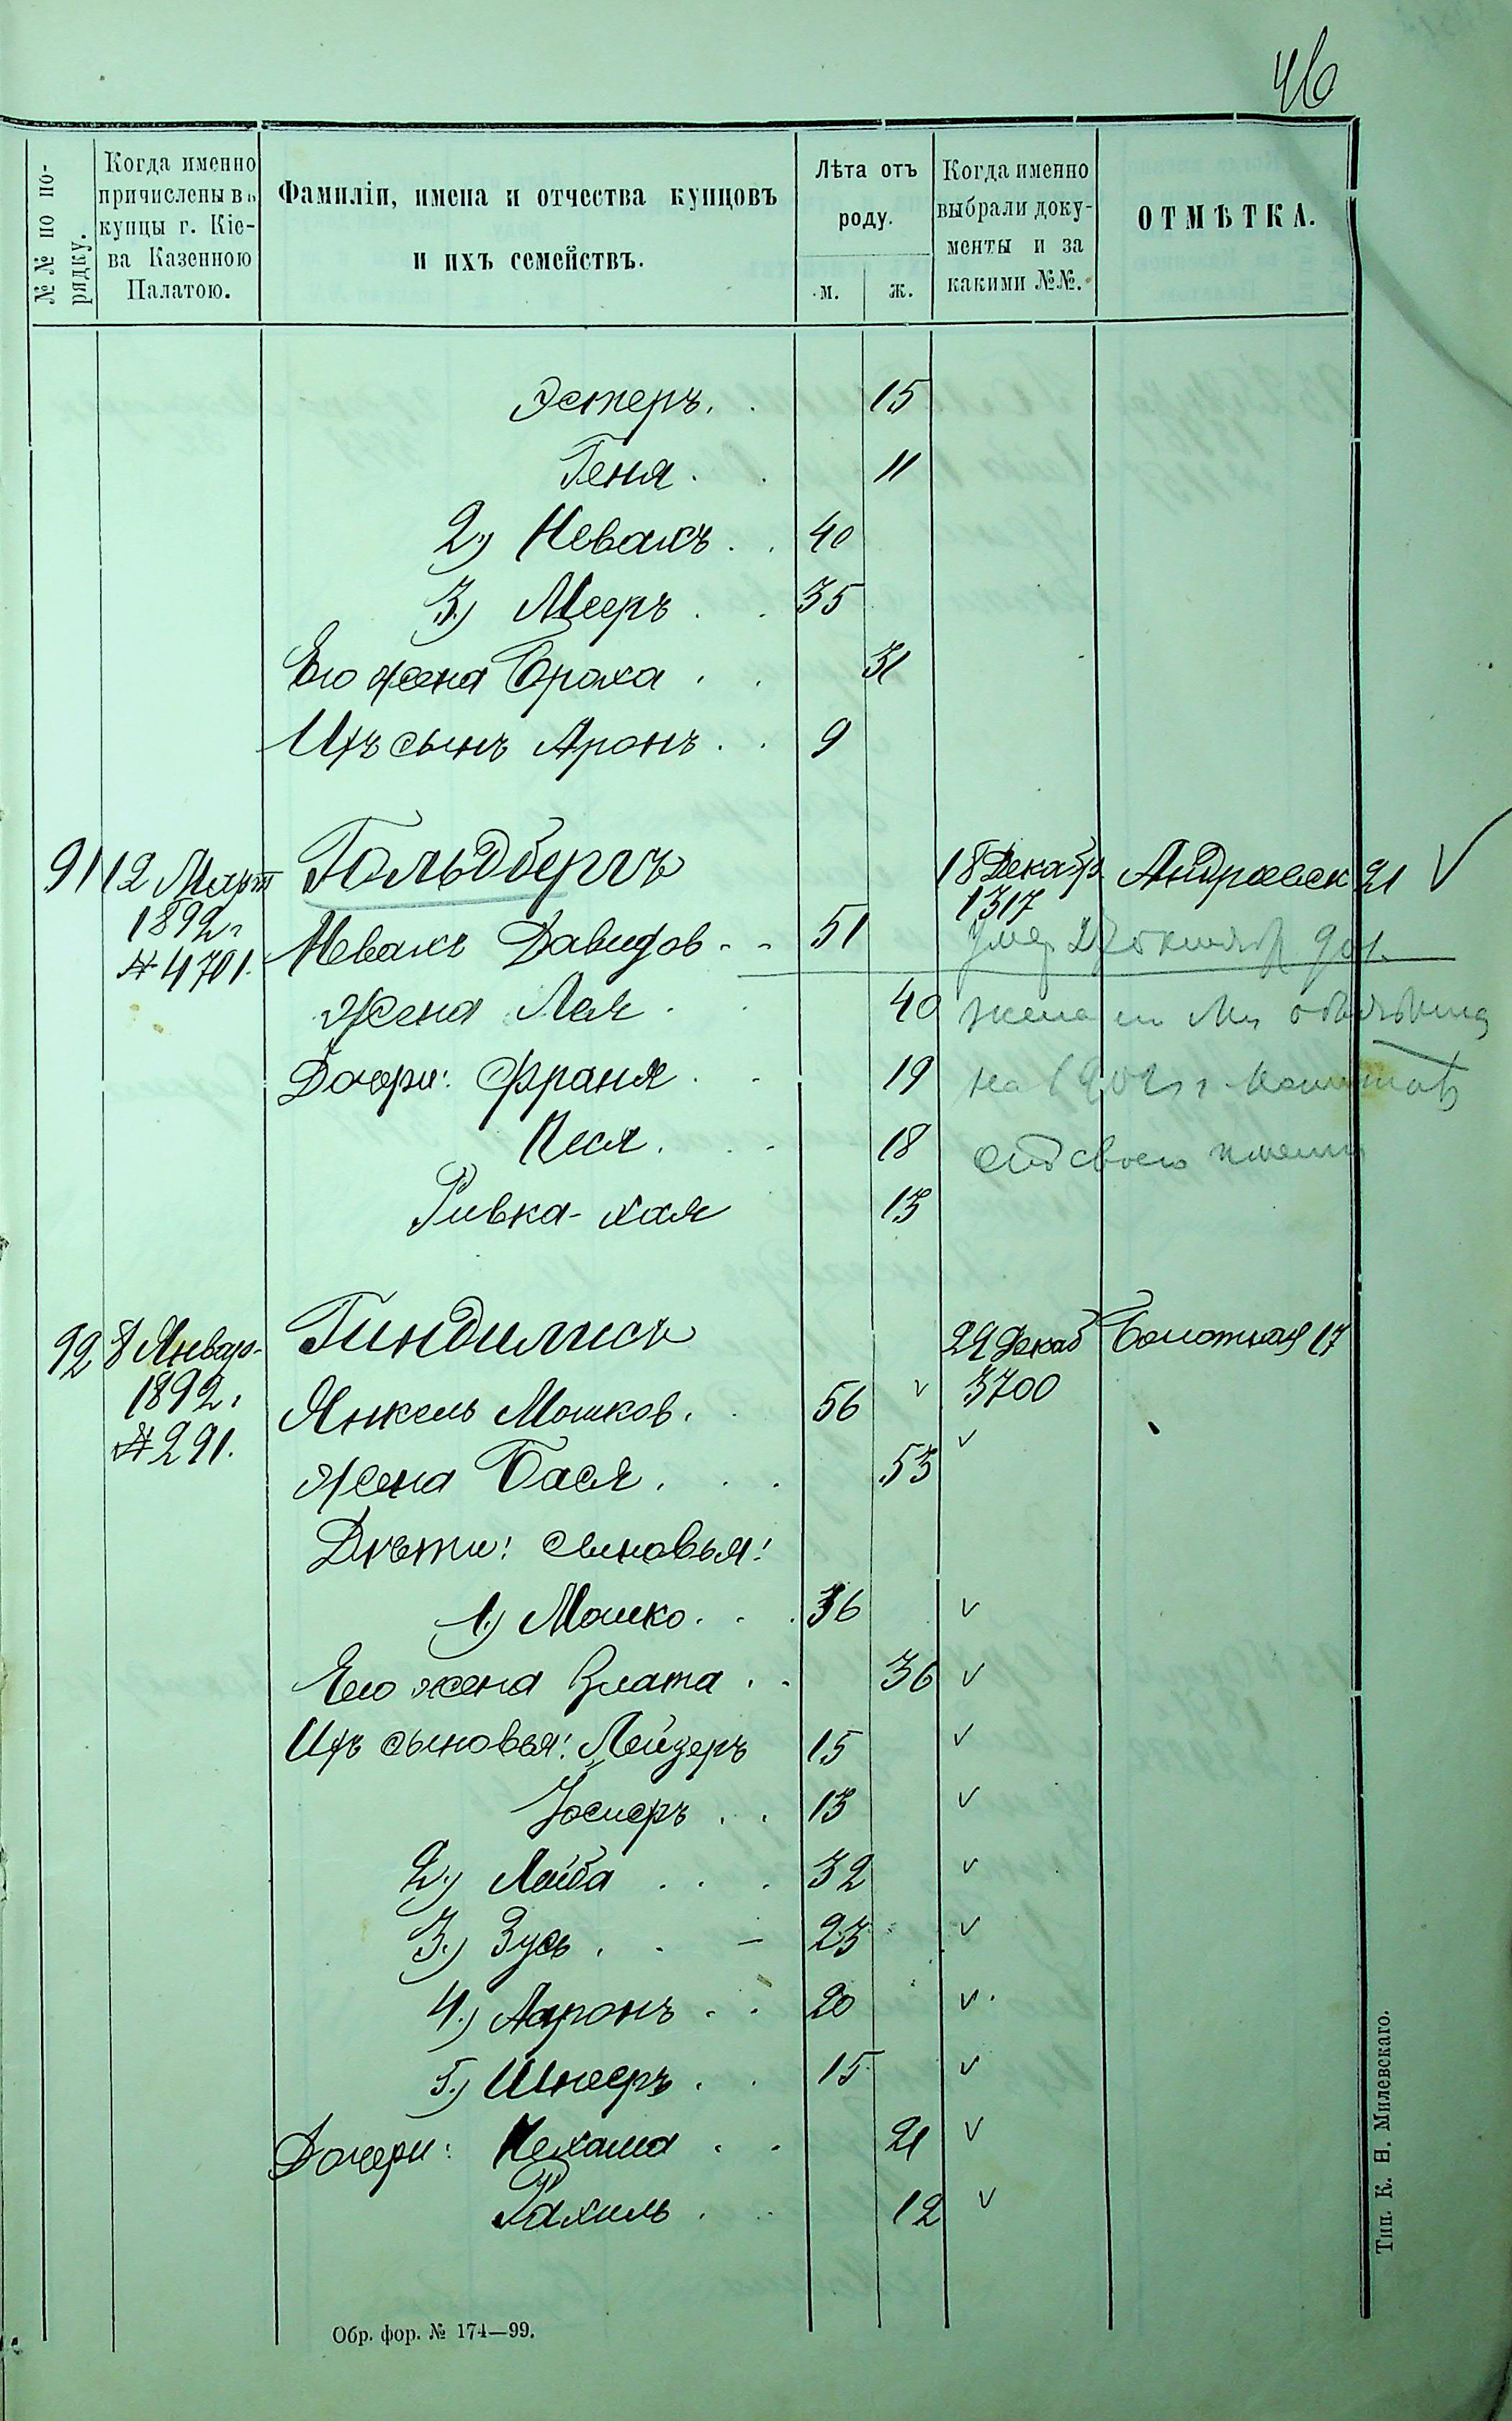 46
№№ по по-
рядку.
Когда именно
причислены въ
купцы г. Кіе-
ва Казенною
Палатою.
Фамиліи, имена и отчества купцовъ
и ихъ семействъ.
Лѣта отъ
роду.
м. ж.
Когда именно
выбрали доку-
менты и за
какими №№.
ОТМѢТКА.
Эстеръ. 15
Геня. 11
2) Невахъ 40
3) Мееръ 35
Его жена Браха 31
Ихъ сынъ Аронъ 9
91 12 Март Гольдбергъ 18 Декабр Андреевск 21
1892 г 1317
№ 4701. Невахъ Давидов 51 умер 27 октябр 901.
Жена Лея 40 жена
Дочери: Франя 19 на 1902 г.
Песя. 18 отъ своего имени
Ривка-Хая 13
92 8 Январ. Гиндилисъ 29 Декаб Болотная 17
1892 г 3700
№ 291. Янкель Мошков. 56
Жена Бася. 53
Дѣти: сыновья:
1) Мошко 36
Его жена Злата 36
Ихъ сыновья: Лейзеръ 15
Іосиеръ 13
2) Лейба 32
3) Зусь 23
4) Ааронъ 20
5) Шнееръ 15
Дочери: Нехама 21
Рахиль 12
Обр. фор. № 174—99.
Тип. К. Н. Милевскаго.